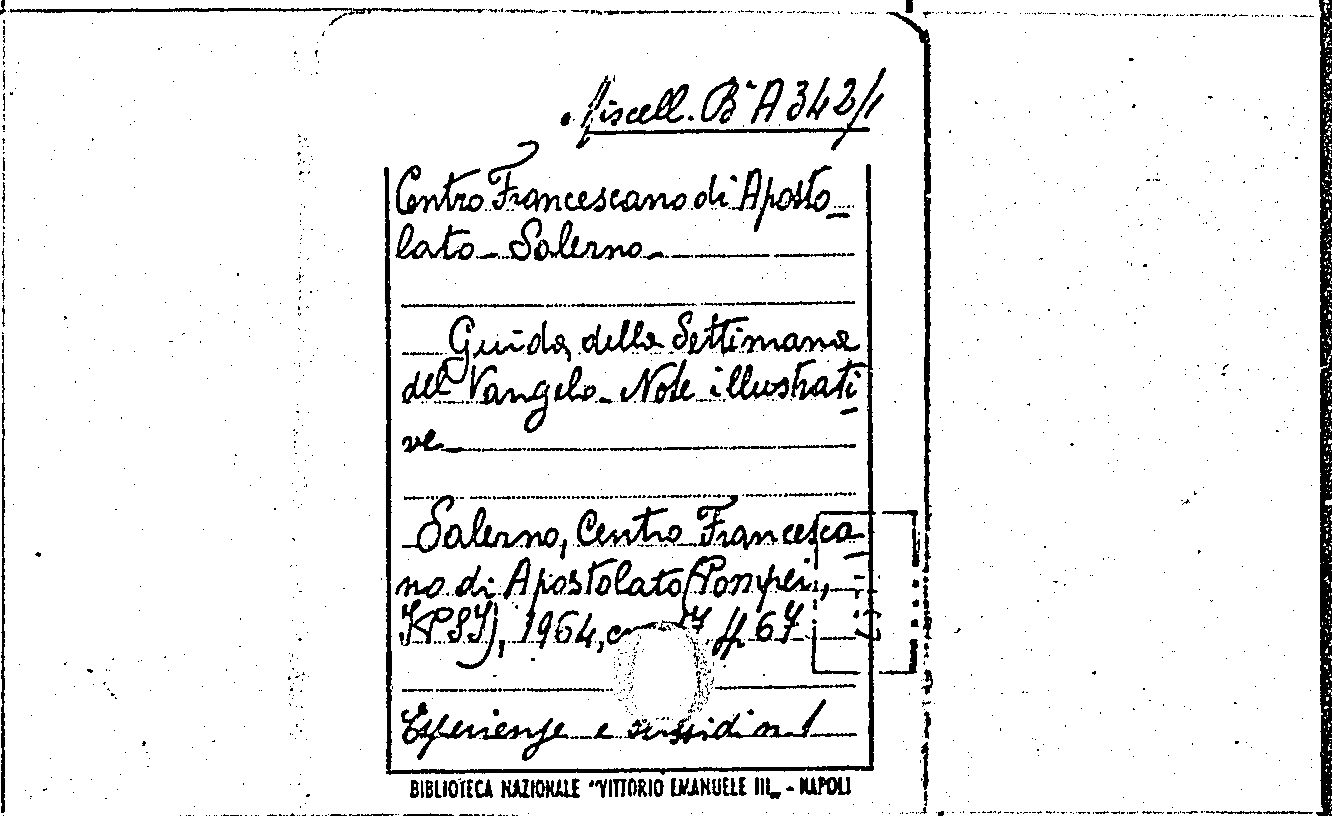 Miscell. B A 342/1
Centro Francescano di Aposto_
lato - Salerno -
Guida della Settimana
del Vangelo - Note illustrati_
ve
Salerno, Centro Francesca_
no di Apostolato (Pompei,
IPSI), 1964, 67
Esperienze e sussidi n. 1
BIBLIOTECA NAZIONALE "VITTORIO EMANUELE III" - NAPOLI